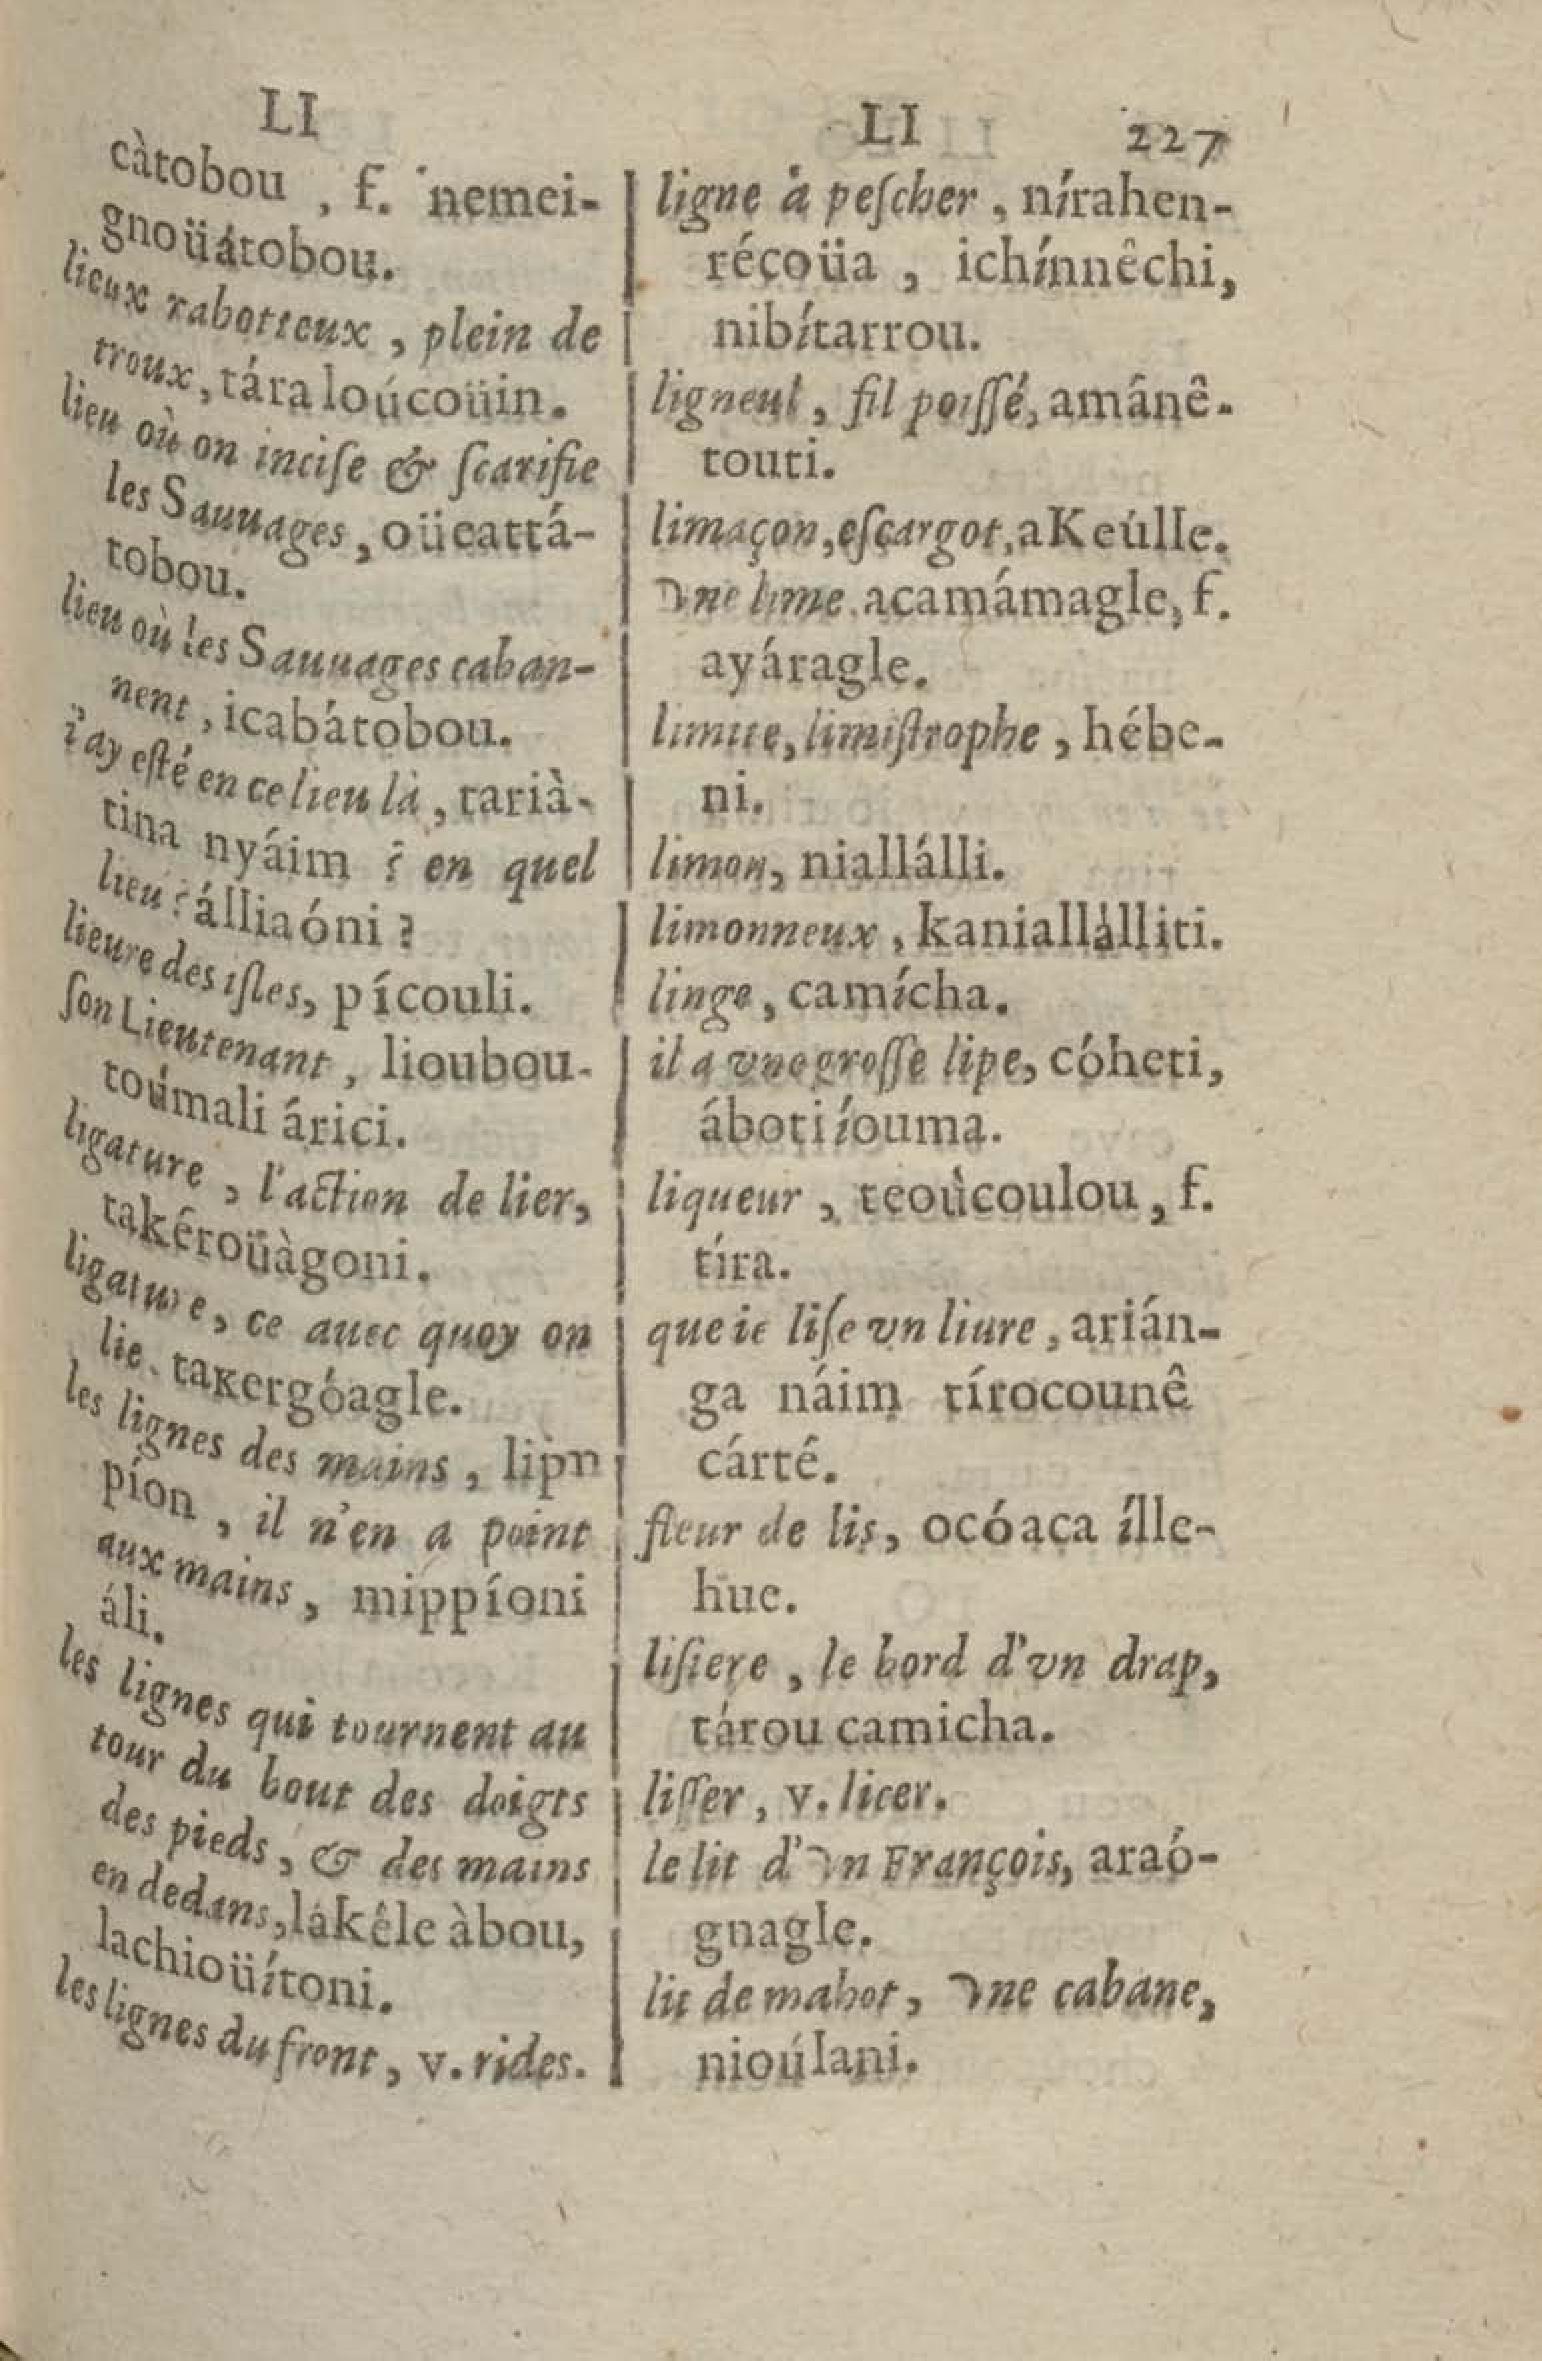 LI
càtobou, f. nemei-
gnoüátobou.
lieux rabotteux, plein de
troux, tára loúcoüin.
lieu où on incise & scarifie
les Sauuages, oücattá-
tobou.
lieu où les Sauuages caban-
nent, icabátobou.
i'ay esté en ce lieu là, tarià-
tina nyáim ? en quel
lieu ? álliaóni ?
lieure des isles, pícouli.
son Lieutenant, lioubou-
toúmali árici.
ligature, l'action de lier,
takêroüàgoni.
ligature, ce auec quoy on
lie. takergóagle.
les lignes des mains, lipn
píon, il n'en a point
aux mains, mippíoni
áli.
les lignes qui tournent au
tour du bout des doigts
des pieds, & des mains
en dedans, lakêle àbou,
lachioüítoni.
les lignes du front, v. rides.
LI 227
ligne à pescher, nírahen-
réçoüa, ichínnêchi,
nibítarrou.
ligneul, fil poissé, amânê-
touti.
limaçon, escargot, aKeúlle.
vne lime. acamámagle, f.
ayáragle.
limite, limistrophe, hébe-
ni.
limon, niallálli.
limonneux, kaniallálliti.
linge, camícha.
il a vne grosse lipe, cóheti,
ábotiíouma.
liqueur, teoùcoulou, f.
tíra.
que ie lise vn liure, arián-
ga náim tírocounê
cárté.
fleur de lis, ocóaca ílle-
hue.
lisiere, le bord d'vn drap,
tárou camicha.
lisser, v. licer.
le lit d'vn François, araó-
gnagle.
lit de mahot, vne cabane,
nioúlani.